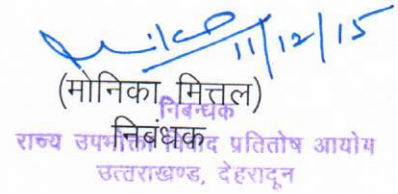 11/12/15
(मोनिका मित्तल)
निबन्धक
निबंधक
राज्य उपभोक्ता विवाद प्रतितोष आयोग
उत्तराखण्ड, देहरादून